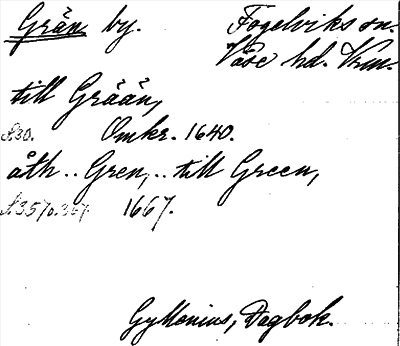 Grän by. Fogelviks sn.
Väse hd. Vrm.
till Grään,
s. 30. Omkr. 1640.
åth .. Gren, .. till Green,
1667.
Gyllenius, Dagbok.